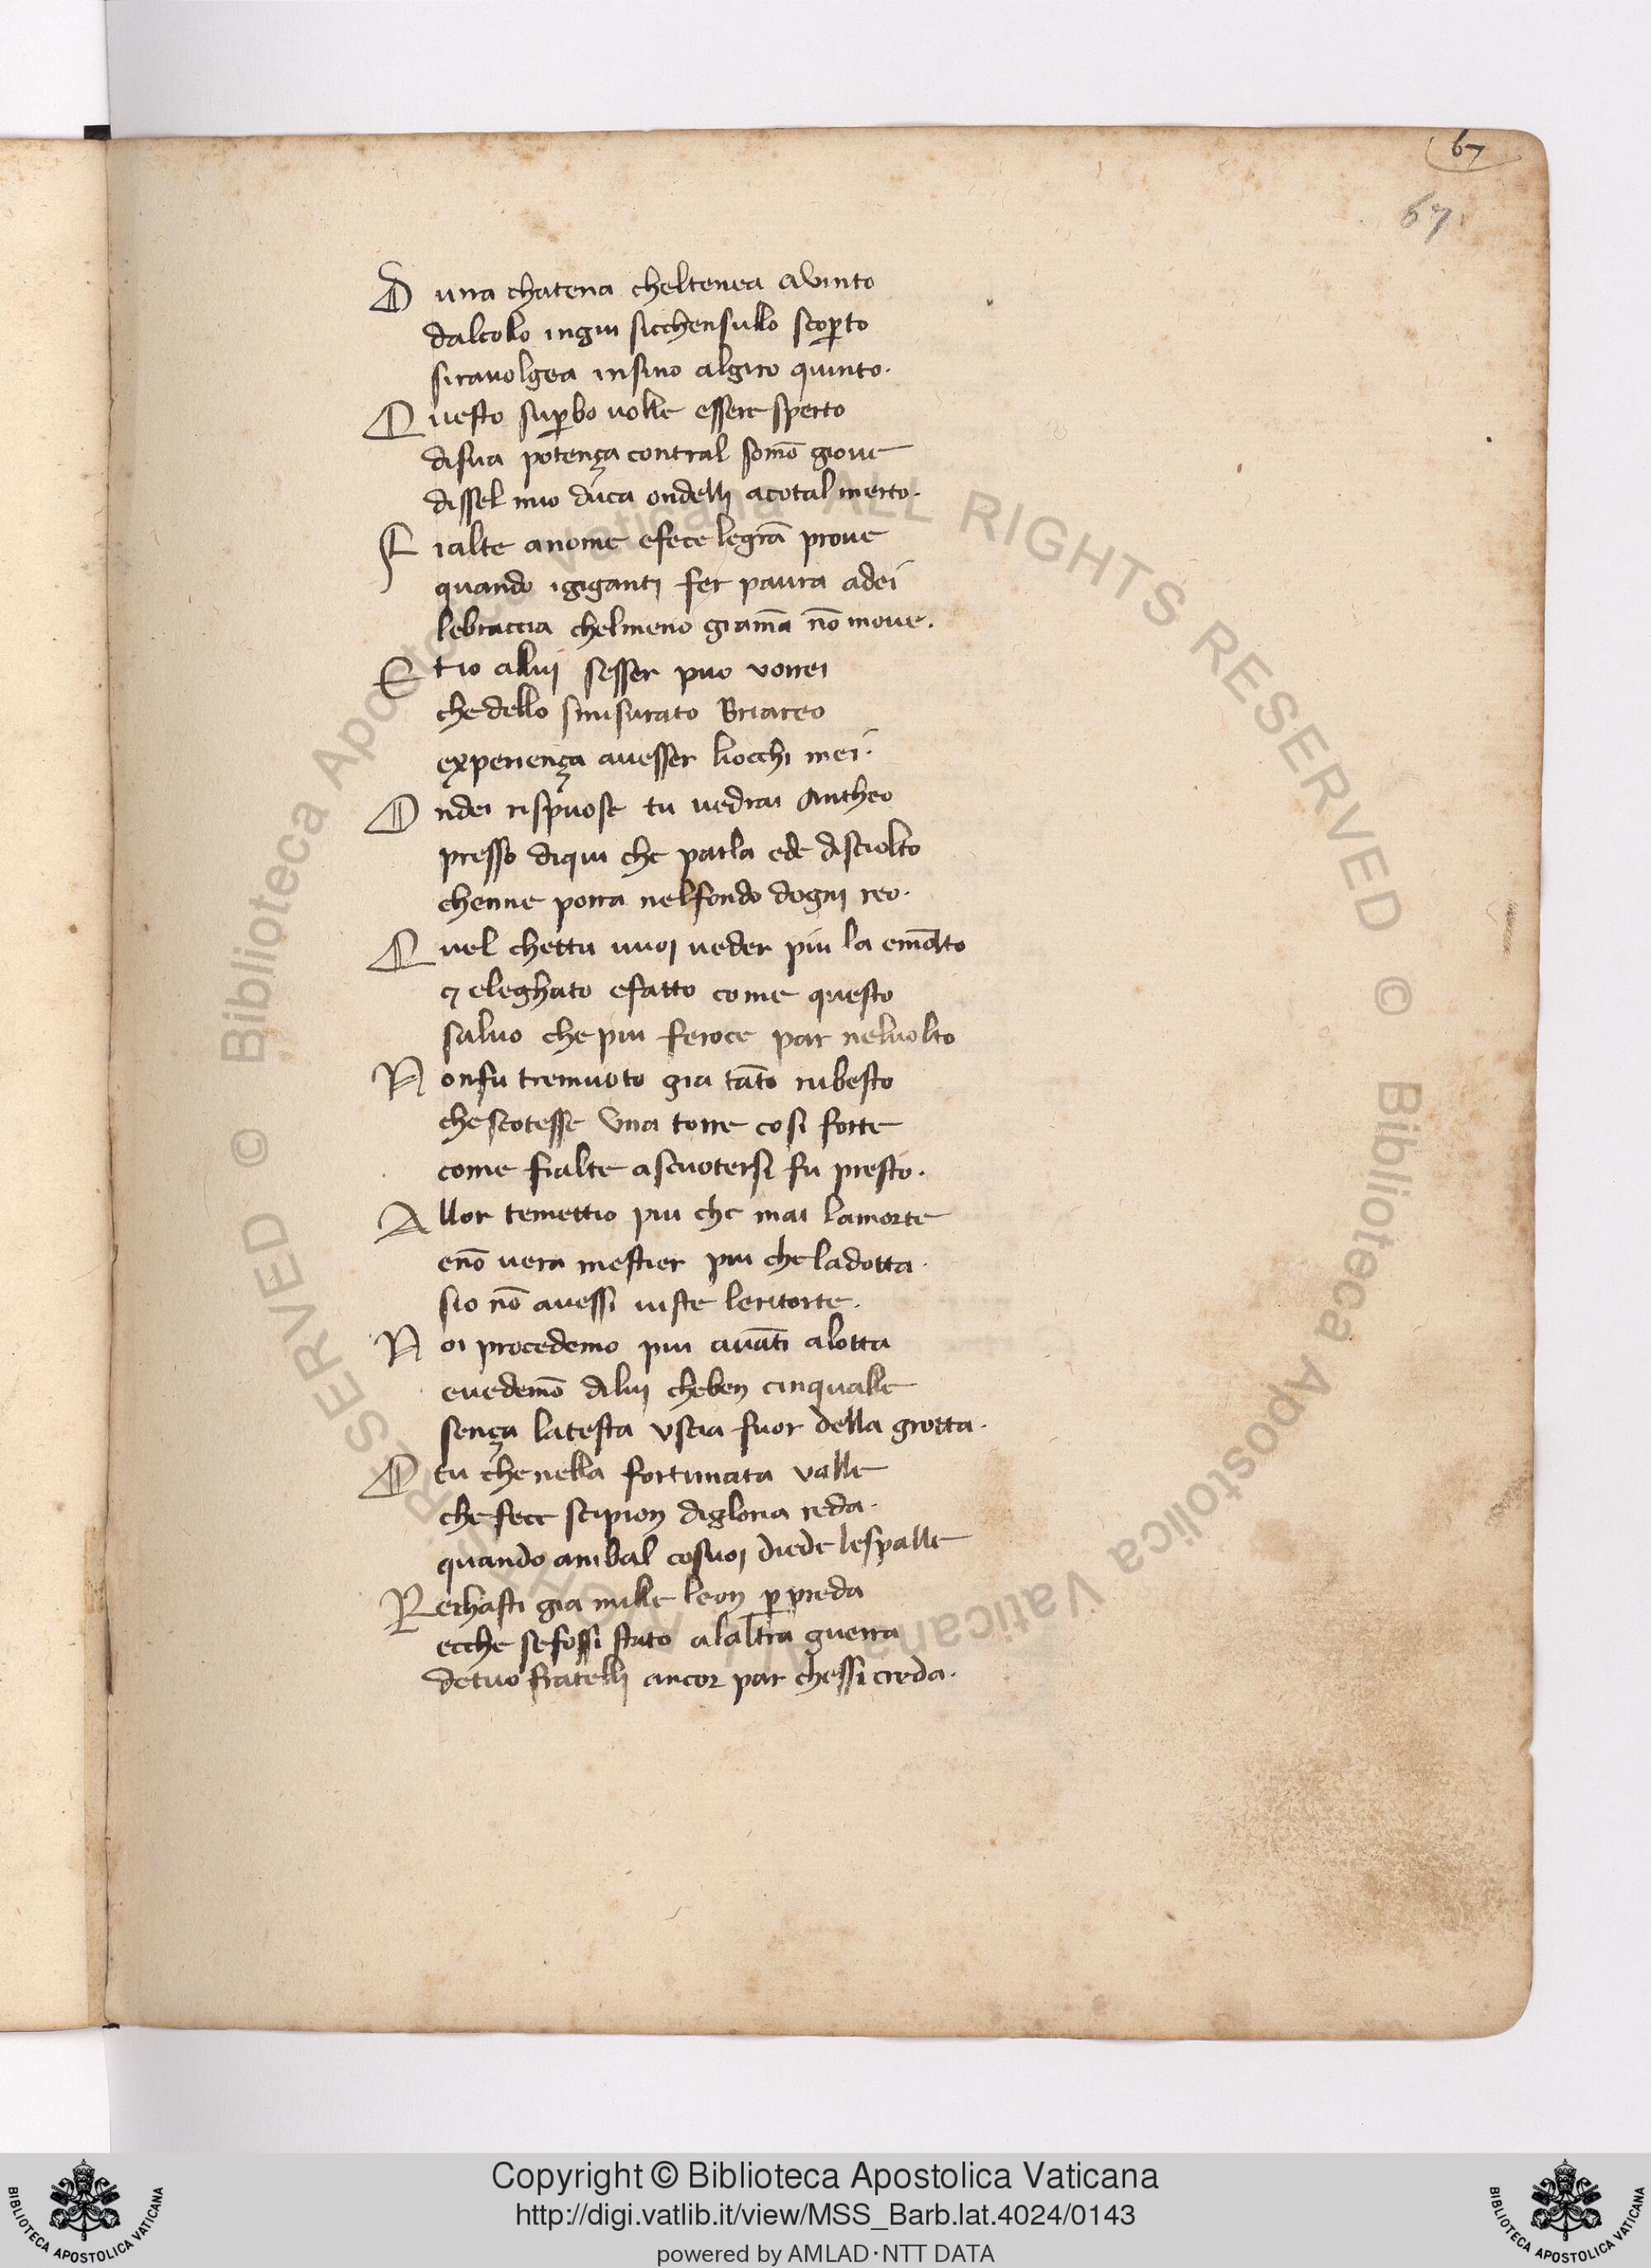 67
67
D una chatena cheltenea avinto
dalcollo ingiu sicchensullo scoꝑto
siravolgea insino algiro quinto.
Questo suꝑbo volle essere sperto
disua potença contral somō giove
dissel mio duca ondelli acotal merto.
Fialte anome efece legrā prove
quando igiganti fer paura adei
lebraccia chelmeno giamā nō move.
Et io allui sesser puo vorrei
chedello smisurato Briareo
experiença avesser liocchi mei.
Ondei rispuose tu vedrai Antheo
presso diqui che parla ede disciolto
chenne porra nelfondo dogni reo.
Quel chettu vuoi veder piu la emōlto
⁊ eleghato efatto come questo
salvo che piu feroce par nelvolto
Nonfu tremuoto gia tāto rubesto
chescotesse una torre cosi forte
come fialte ascuotersi fu presto.
Allor temettio piu che mai lamorte
enō vera mestier piu che ladotta.
sio nō avessi viste leritorte.
Noi procedemo piu avāti alotta
evedemō dilui cheben cinqualle
sença latesta uscia fuor della grotta.
O tu chenella fortunata valle
che fece scipion digloria reda.
quando anibal cosuoi diede lespalle
Rechasti gia mille leon ꝑ preda
ecche sefossi stato alaltra guerra
detuo fratelli ancor par chessi creda.
© Biblioteca Apostolica Vaticana ALL RIGHTS RESERVED © Biblioteca Apostolica Vaticana ALL RIGHTS RESERVED
Copyright © Biblioteca Apostolica Vaticana
http://digi.vatlib.it/view/MSS_Barb.lat.4024/0143
powered by AMLAD·NTT DATA
BIBLIOTECA APOSTOLICA VATICANA
BIBLIOTECA APOSTOLICA VATICANA